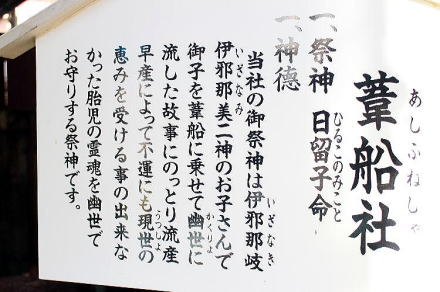 葦船社
あしふねしゃ
一、祭神 日留子命
ひるこのみこと
一、神徳
当社の御祭神は伊邪那岐
いざなき
伊邪那美二神のお子さんで
いざなみ
御子を葦船に乗せて幽世に
かくりよ
流した故事にのっとり流産
早産によって不運にも現世の
うつしよ
恵みを受ける事の出来な
かった胎児の霊魂を幽世で
お守りする祭神です。